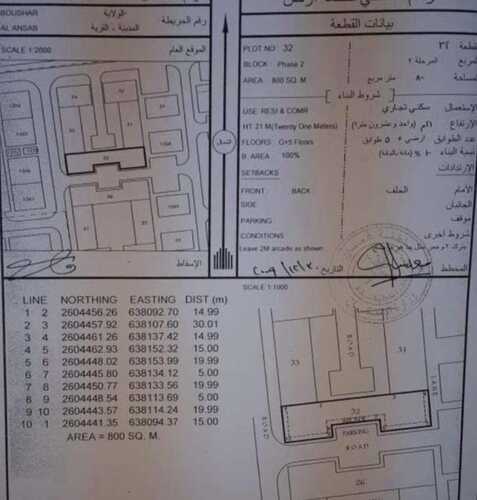 BOUSHAR
الولاية
AL ANSAB
المدينة - القرية
رقم الخريطة
SCALE 1:2000
الموقع العام
بيانات القطعة
PLOT NO 32 ٣٢ قطعة
BLOCK Phase 2 المرحلة ٢ مربع
AREA 800 SQ. M. ٨٠٠ متر مربع مساحة
شروط البناء
USE RESI & COMR سكني تجاري الإستعمال
HT 21 M(Twenty One Meters) الإرتفاع
FLOORS G+5 Floors أرضي + ٥ طوابق عدد الطوابق
B. AREA 100% نسبة البناء
SETBACKS الإرتدادات
FRONT BACK الخلف الأمام
SIDE الجانبان
PARKING موقف
CONDITIONS شروط أخرى
Leave 2M arcade as shown
الشمال
الإسقاط
التاريخ
المخطط
SCALE 1:1000
LINE NORTHING EASTING DIST (m)
1 2 2604456.26 638092.70 14.99
2 3 2604457.92 638107.60 30.01
3 4 2604461.26 638137.42 14.99
4 5 2604462.93 638152.32 15.00
5 6 2604448.02 638153.99 19.99
6 7 2604445.80 638134.12 5.00
7 8 2604450.77 638133.56 19.99
8 9 2604448.54 638113.69 5.00
9 10 2604443.57 638114.24 19.99
10 1 2604441.35 638094.37 15.00
AREA = 800 SQ. M.
33
ROAD
31
LANE
32
PARKING
ROAD
ROAD